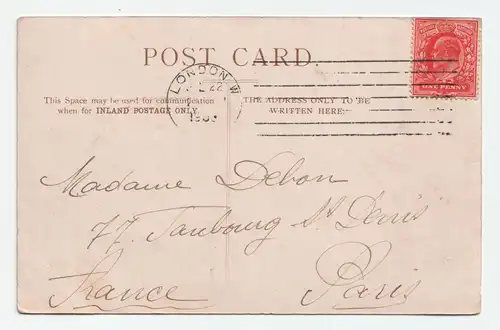 POST CARD.
LONDON.W
22
This Space may be used for communication
when for INLAND POSTAGE ONLY.
THE ADDRESS ONLY TO BE
WRITTEN HERE.
ONE PENNY
Madame Debon
77. Faubourg St Denis
France Paris